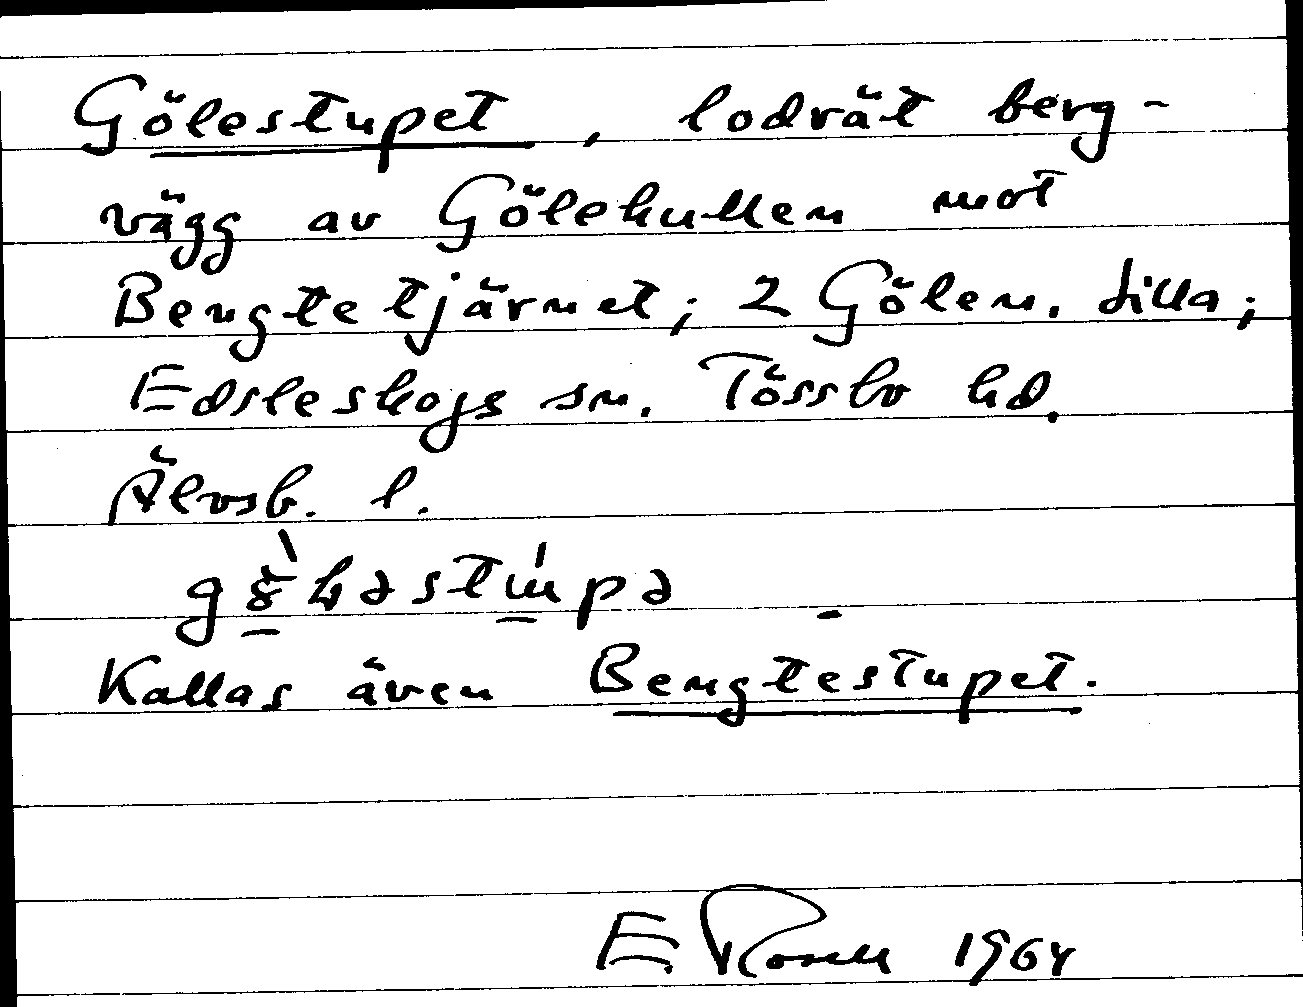 Gölestupet, lodrät berg-
vägg av Gölekullen mot
Bengtetjärnet; 2 Gölen. Lilla;
Edsleskogs sn. Tössbo hd.
Älvsb. l.
Kallas även Bengtestupet.
E 1964